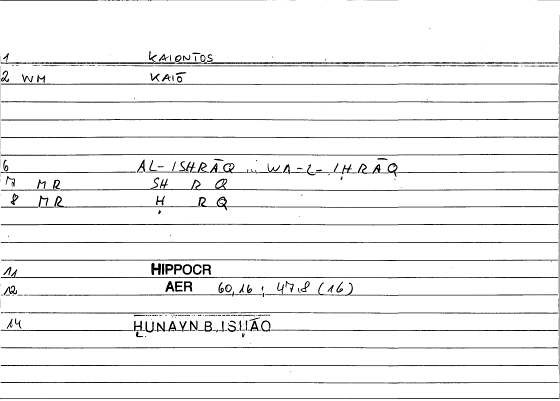 1 KAIONTOS
2 WM KAIŌ
6 AL-ISHRĀQ ... WA-L-IḤRĀQ
7 MR SH R Q
8 MR Ḥ R Q
11 HIPPOCR
12 AER 60,16 ; 47.8 (16)
14 ḤUNAYN B. ISḤĀQ